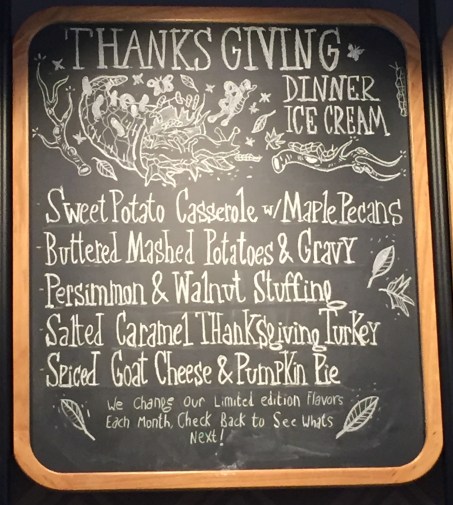 THANKS GIVING
DINNER
ICE CREAM
Sweet Potato Casserole w/ Maple Pecans
Buttered Mashed Potatoes & Gravy
Persimmon & Walnut Stuffing
Salted Caramel THanksgiving Turkey
Spiced Goat Cheese & Pumpkin Pie
We Change Our Limited edition Flavors
Each Month, Check Back to See Whats
Next!